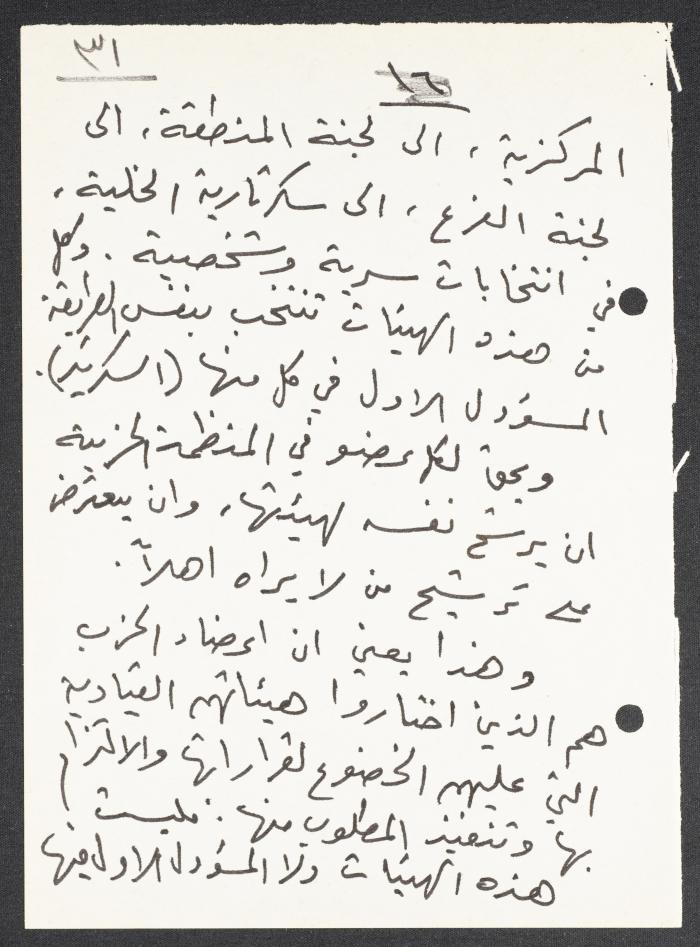 ٣١
١٦
المركزية ، الى لجنة المنطقة ، الى
لجنة الفرع ، الى سكرتارية الخلية ،
في انتخابات سرية وشخصية . وكل
من هذه الهيئات تنتخب بنفس الطريقة
المسؤول الاول في كل منها (السكرتير).
ويحق لكل عضو في المنظمة الحزبية
ان يرشح نفسه لهيئتها، وان يعترض
على ترشيح من لا يراه اهلاً .
وهذا يعني ان اعضاء الحزب
هم الذين اختاروا هيئاتهم القيادية
التي عليهم الخضوع لقراراتها والالتزام
بها وتنفيذ المطلوب منها . فليست
هذه الهيئات ولا المسؤول الاول فيها